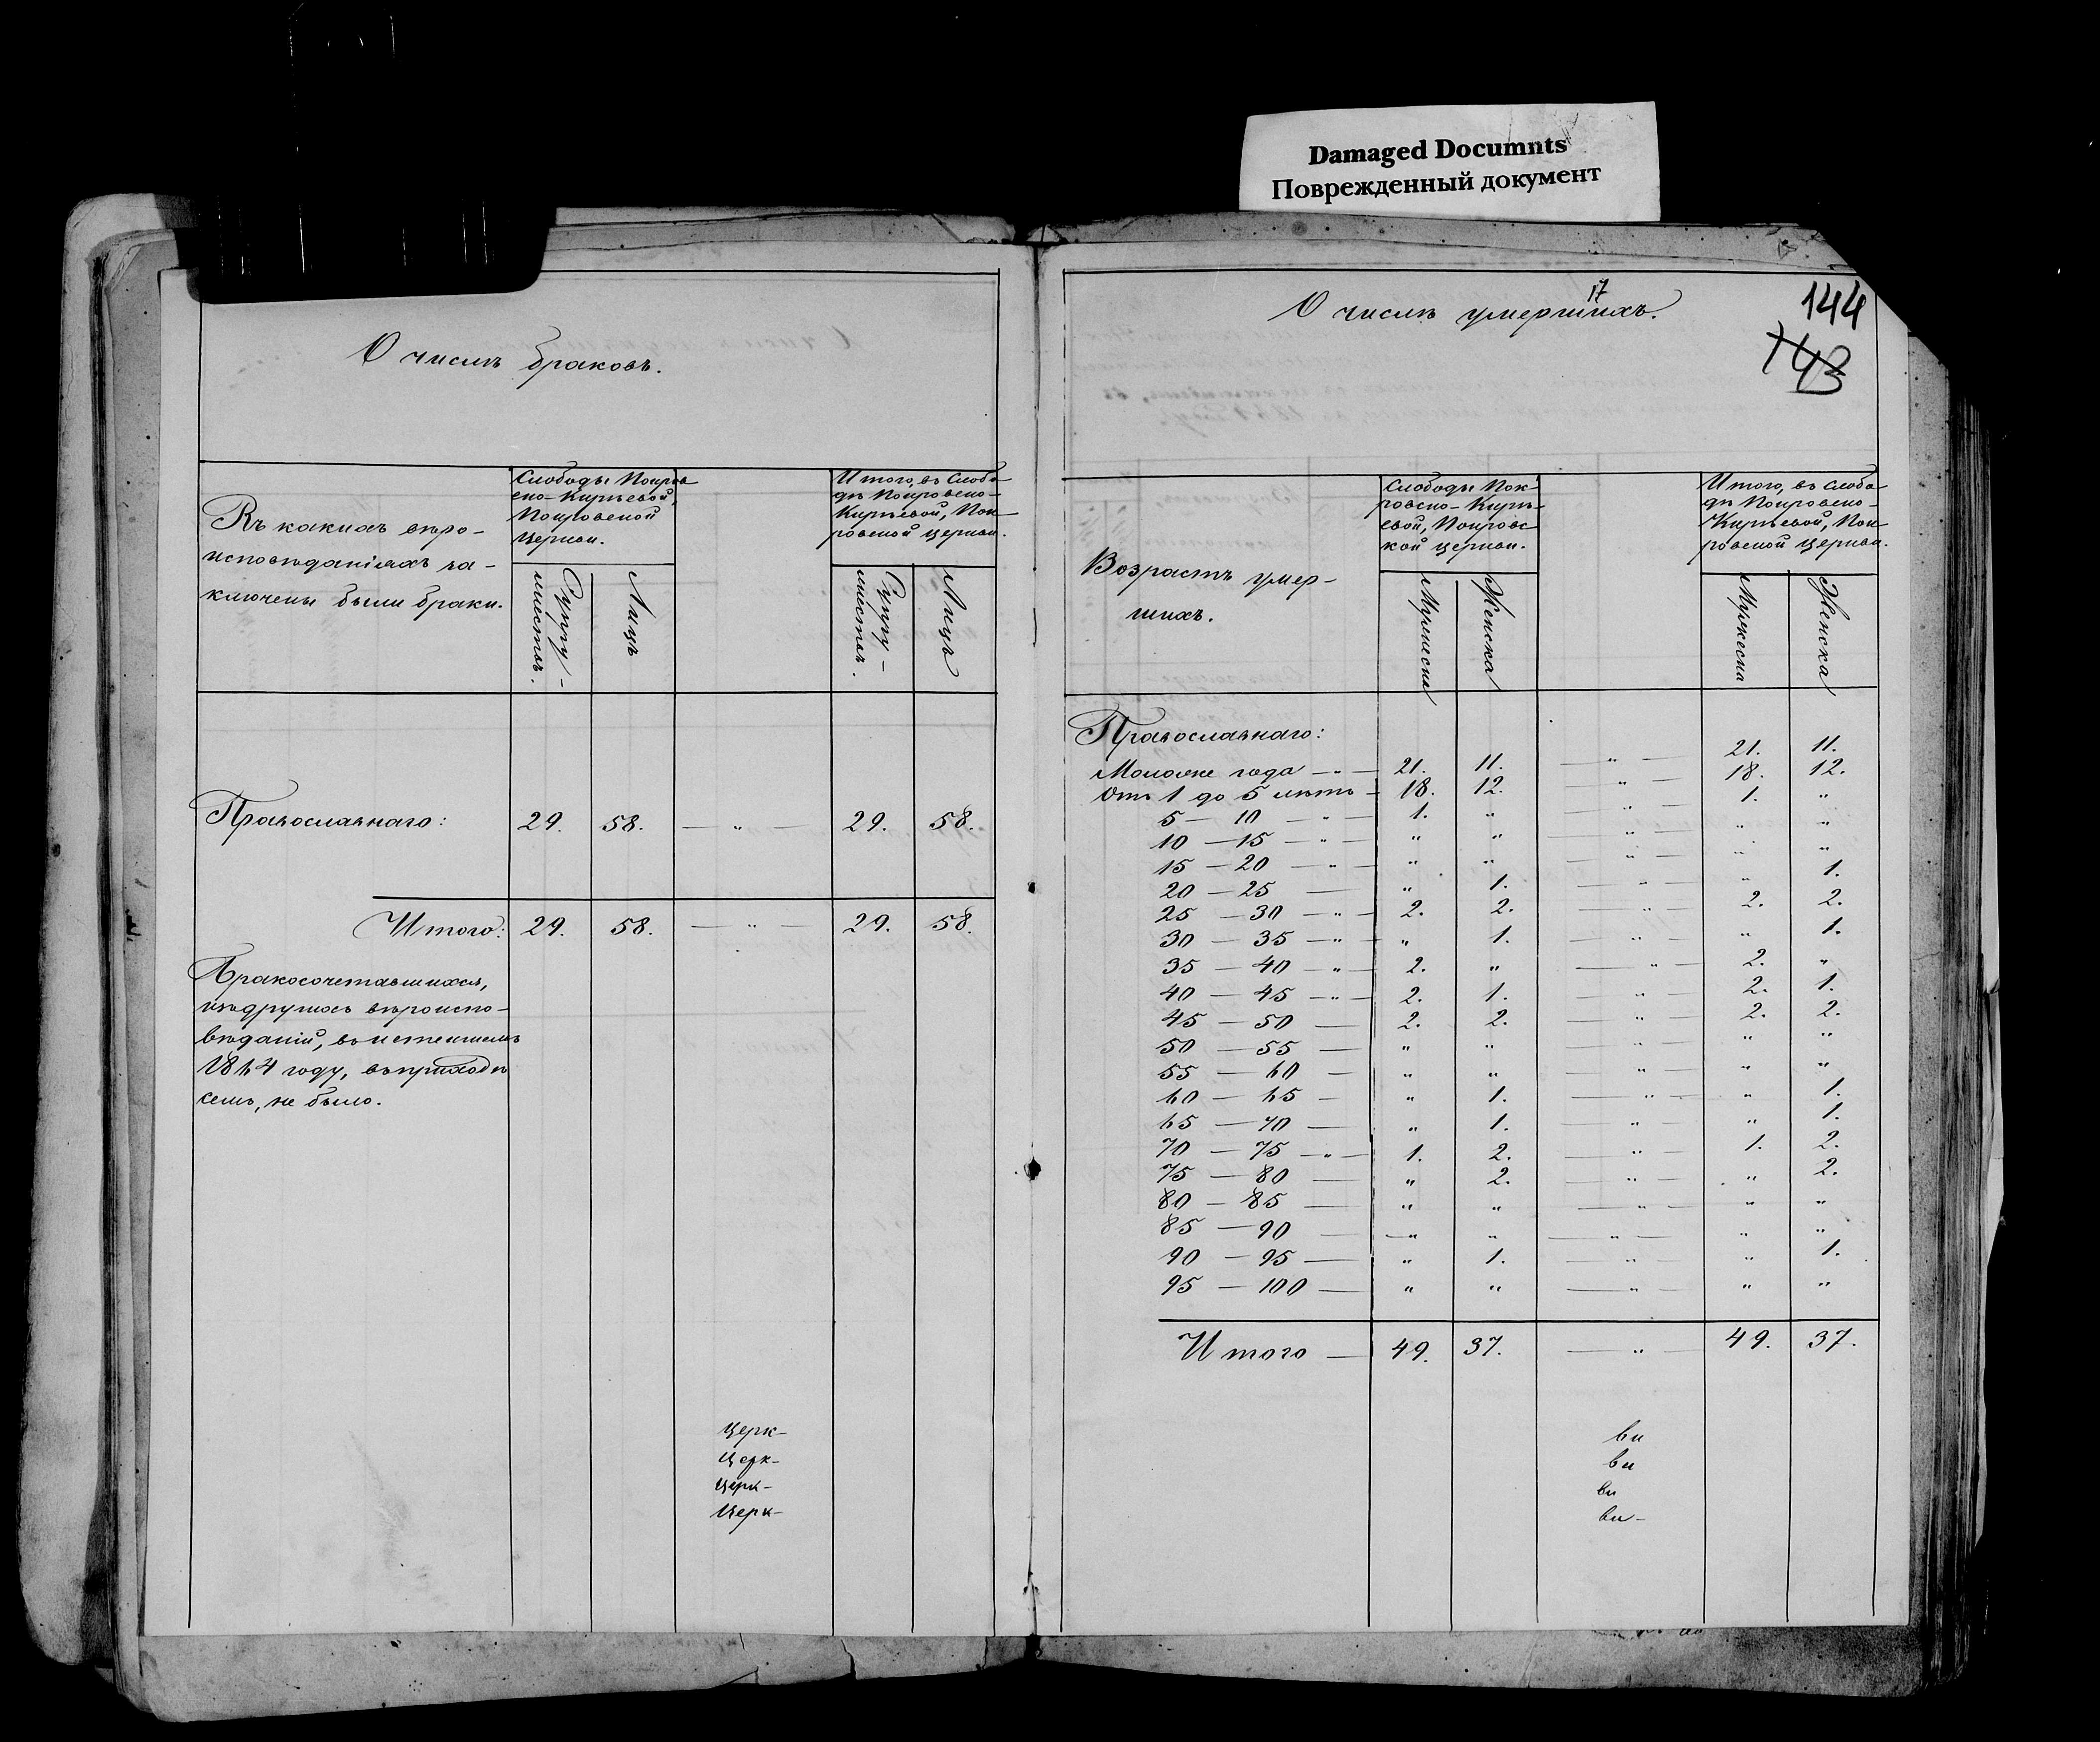 Damaged Documnts
Поврежденный документ
О числѣ браковъ.
Въ какихъ вѣро-
исповѣданіяхъ за-
ключены были браки.
Слободы Покров
ско-Кирѣевой,
Покровской
церкви.
Супру-
жествъ.
Лицъ
Итого, въ Слобо-
дѣ Покровско-
Кирѣевой, Пок-
ровской церкви.
Супру-
жествъ.
Лицъ
Православнаго: 29. 58. — „ — 29. 58.
Итого: 29. 58. — „ — 29. 58.
Бракосочетавшихся,
изъ другихъ вѣроиспо-
вѣданій, въ истекшемъ
1864 году, въ приходѣ
семъ, не было.
церк-
церк-
церк-
церк-
17
О числѣ умершихъ.
144
143
Возрастъ умер-
шихъ.
Слободы Пок-
ровско-Кирѣ-
евой, Покровс-
кой церкви.
Мужеска
Женска
Итого, въ Слобо-
дѣ Покровско-
Кирѣевой, Пок-
ровской церкви.
Мужеска
Женска
Православнаго:
Моложе года — „ — 21. 11. — „ — 21. 11.
Отъ 1 до 5 лѣтъ — 18. 12. — „ — 18. 12.
5 — 10 — „ — 1. „ — „ — 1. „
10 — 15 — „ — „ „ — „ — „ „
15 — 20 — „ — „ „ — „ — „ „
20 — 25 — „ 1. — „ — „ 1.
25 — 30 — „ — 2. 2. — „ — 2. 2.
30 — 35 — „ — „ 1. — „ — „ 1.
35 — 40 — „ — 2. „ — „ — 2. „
40 — 45 — „ — 2. 1. — „ — 2. 1.
45 — 50 — 2. 2. — „ — 2. 2.
50 — 55 — „ „ — „ — „ „
55 — 60 — „ „ — „ — „ „
60 — 65 — „ 1. — „ — „ 1.
65 — 70 — „ 1. — „ — „ 1.
70 — 75 — „ — 1. 2. — „ — 1. 2.
75 — 80 — „ 2. — „ — „ 2.
80 — 85 — „ „ — „ — „ „
85 — 90 — „ „ — „ — „ „
90 — 95 — „ 1. — „ — „ 1.
95 — 100 — „ „ — „ — „ „
Итого — 49. 37. — „ — 49. 37.
ви
ви
ви
ви-